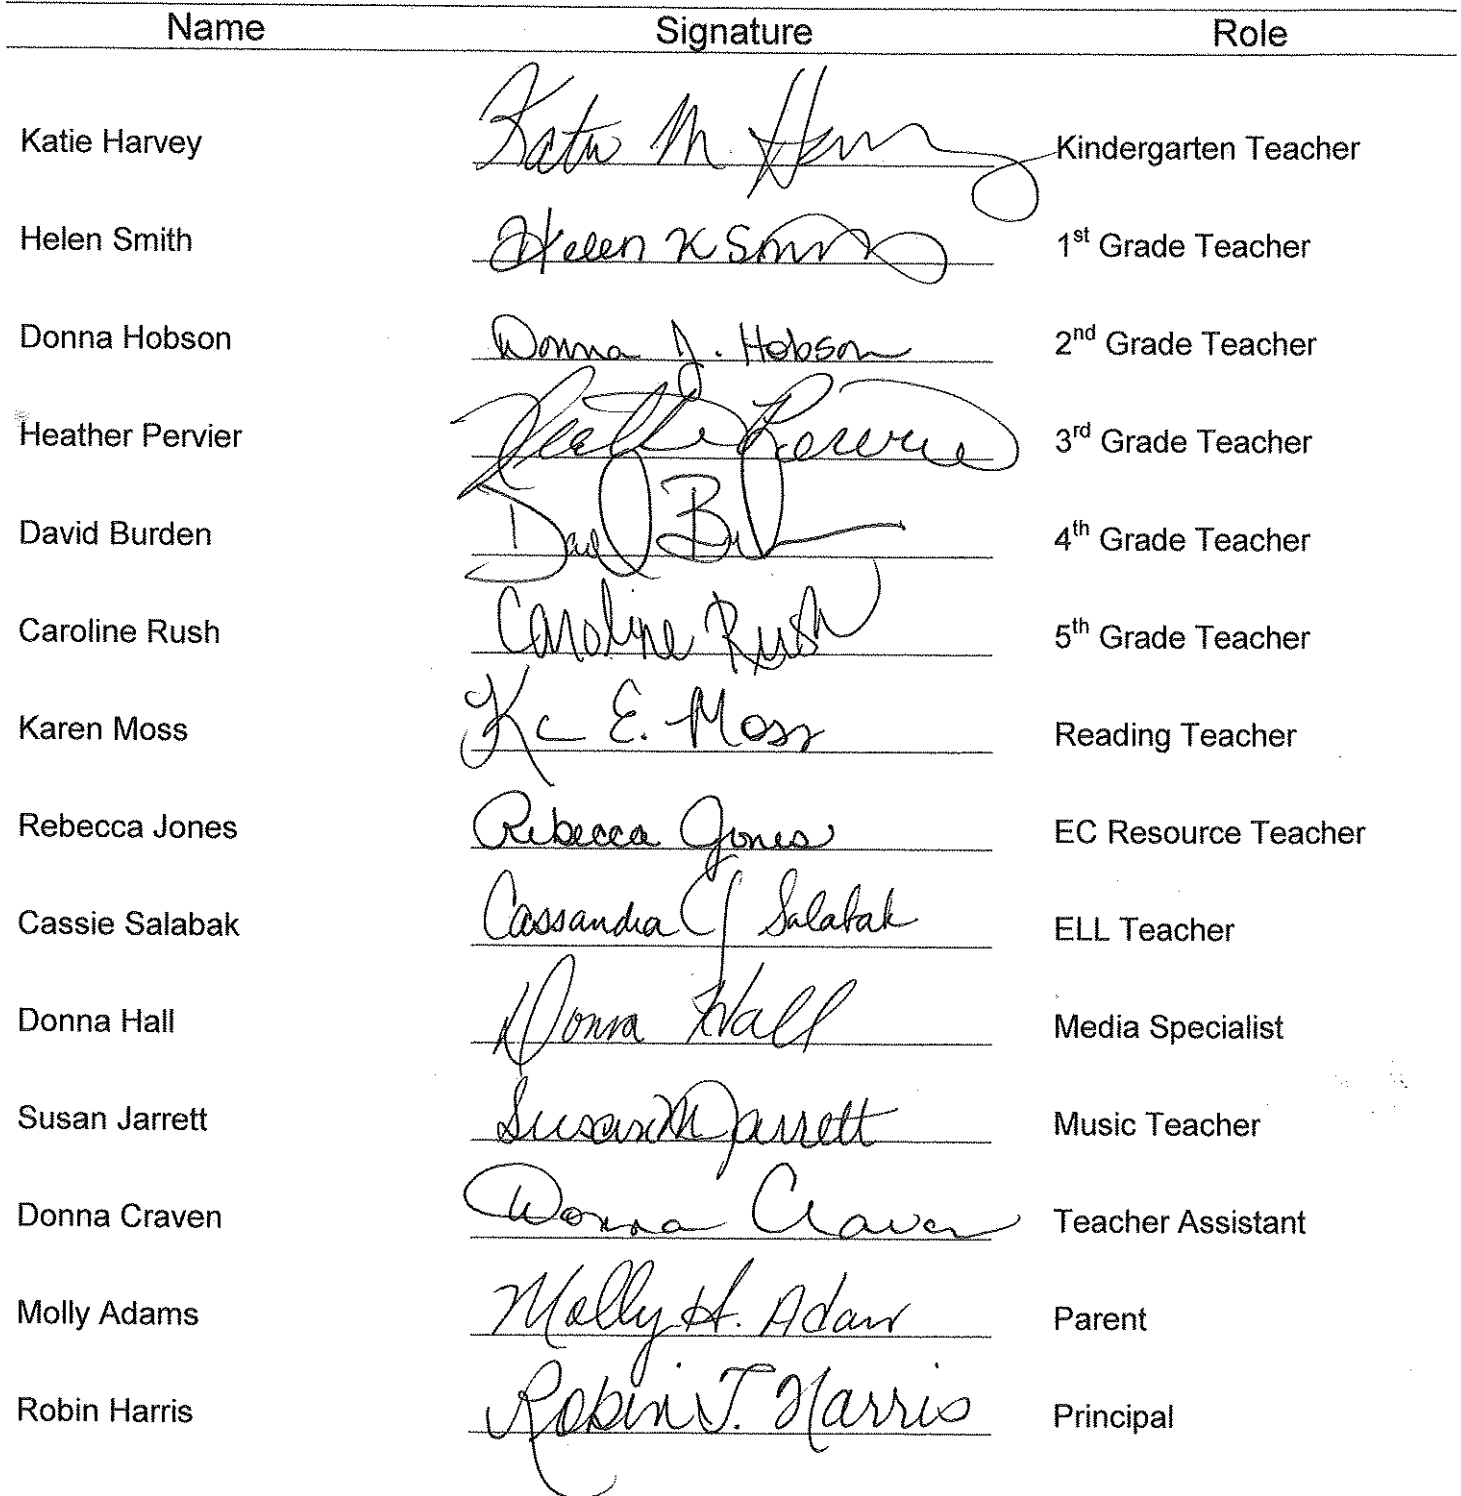 Name Signature Role
Katie Harvey Katie M Harvey Kindergarten Teacher
Helen Smith Helen K Smith 1st Grade Teacher
Donna Hobson Donna J. Hobson 2nd Grade Teacher
Heather Pervier Heather Pervier 3rd Grade Teacher
David Burden David Burden 4th Grade Teacher
Caroline Rush Caroline Rush 5th Grade Teacher
Karen Moss K E. Moss Reading Teacher
Rebecca Jones Rebecca Jones EC Resource Teacher
Cassie Salabak Cassandra J Salabak ELL Teacher
Donna Hall Donna Hall Media Specialist
Susan Jarrett Susan M Jarrett Music Teacher
Donna Craven Donna Craven Teacher Assistant
Molly Adams Molly H. Adams Parent
Robin Harris Robin T. Harris Principal